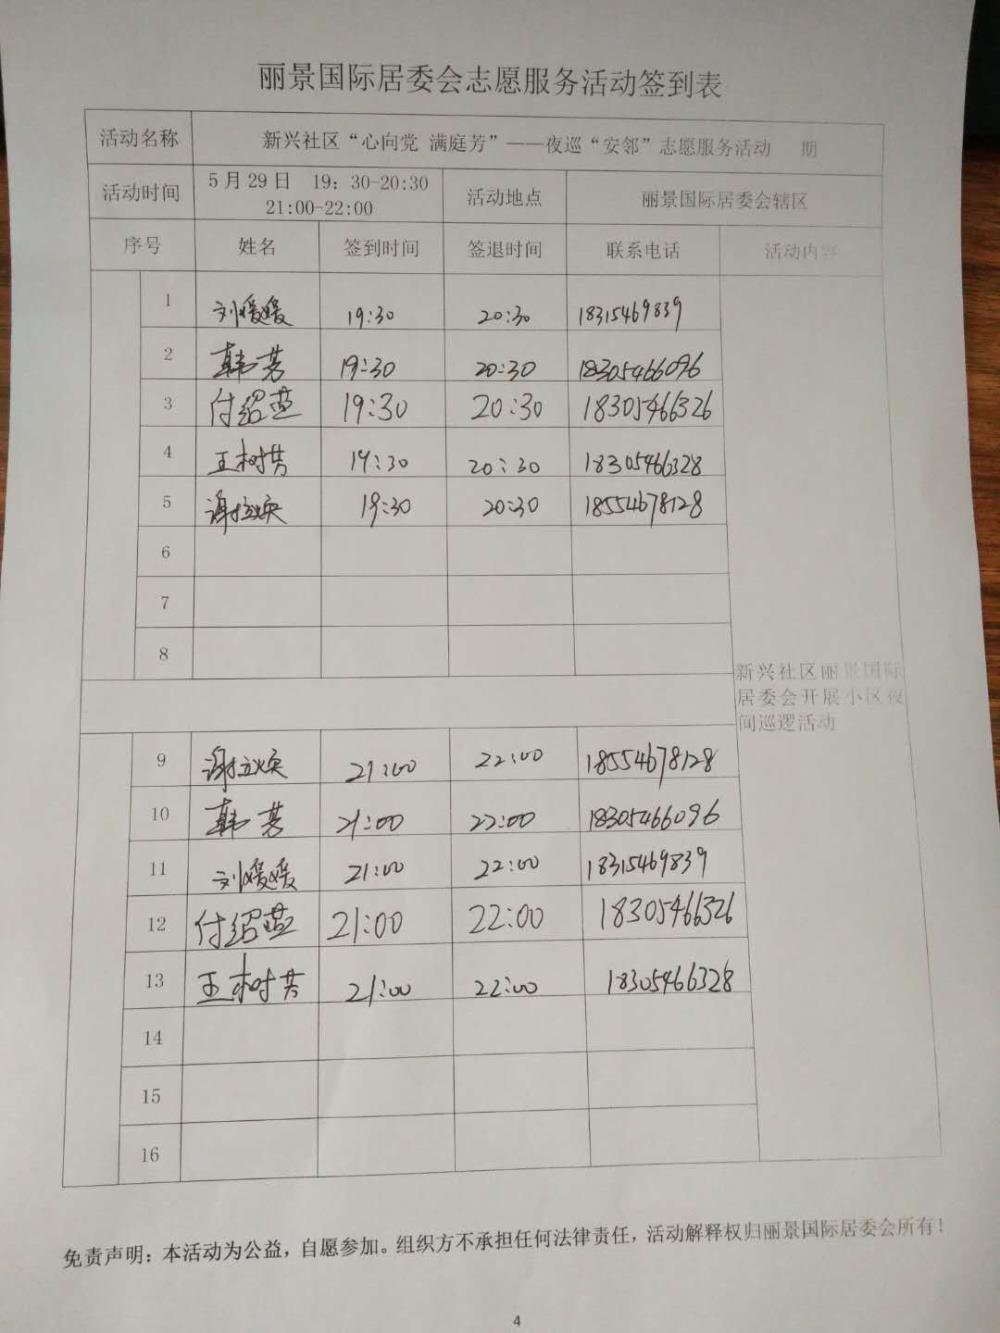 丽景国际居委会志愿服务活动签到表
活动名称 新兴社区“心向党 满庭芳”——夜巡“安邻”志愿服务活动 期
活动时间 5月29日 19：30-20:30 活动地点 丽景国际居委会辖区
21:00-22:00
序号 姓名 签到时间 签退时间 联系电话 活动内容
1 刘媛媛 19:30 20:30 18315469839
2 韩芳 19:30 20:30 18305466096
3 付绍燕 19:30 20:30 18305466326
4 王树芳 19:30 20:30 18305466328
5 谢 焕 19:30 20:30 18554678128
6
7
8
新兴社区丽景国际
居委会开展小区夜
间巡逻活动
9 谢 焕 21:00 22:00 18554678128
10 韩芳 21:00 22:00 18305466096
11 刘媛媛 21:00 22:00 18315469839
12 付绍燕 21:00 22:00 18305466326
13 王树芳 21:00 22:00 18305466328
14
15
16
免责声明：本活动为公益，自愿参加。组织方不承担任何法律责任，活动解释权归丽景国际居委会所有！
4